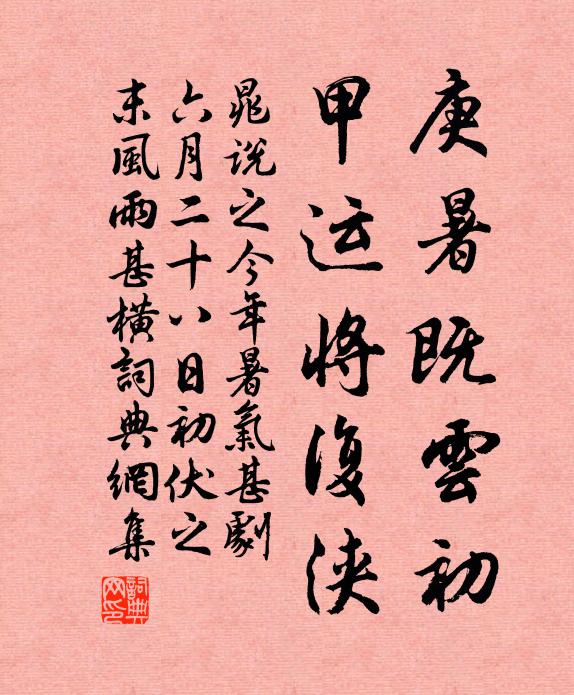 庚暑既雲初
甲运將復浹
晁說之今年暑氣甚劇
六月二十八日初伏之
末風雨甚橫詞典網集
詞典
网印